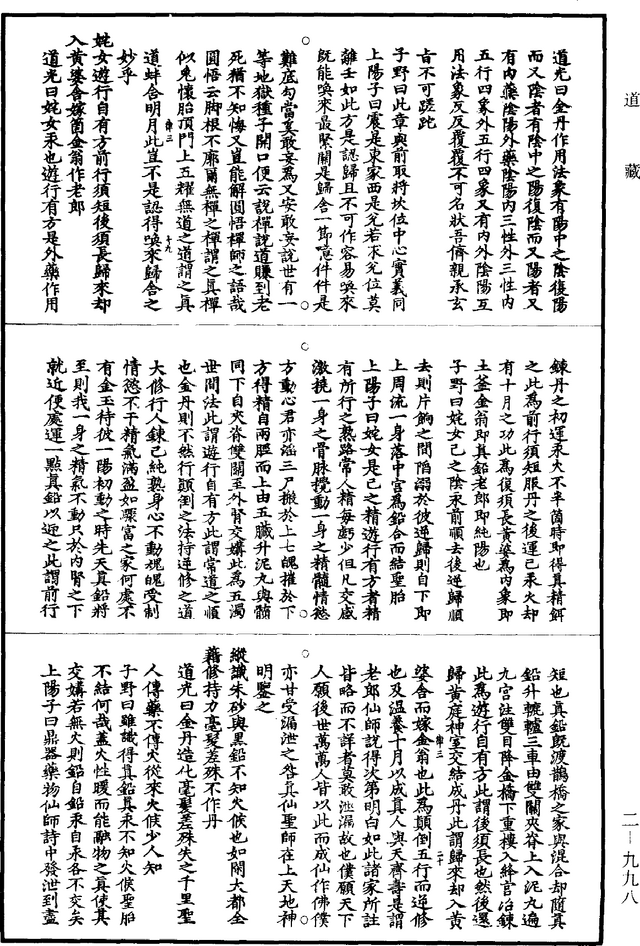 道藏
道光曰金丹作用法象有陽中之陰復陽
而又陰者有陰中之陽復陰而又陽者又
有內藥陰陽外藥陰陽內三性外三性內
五行四象外五行四象又有內外陰陽互
用法象反反覆覆不可名狀吾儕親承玄
旨不可蹉跎
子野曰此章與前取將坎位中心實義同
上陽子曰震是東家西是兌若求兌位莫
離壬如此方是認歸且不可作容易喚來
既能喚來最緊關是歸舍一節噫件件是
難底勾當奚敢妄為又安敢妄說世有一
等地獄種子開口便云說禪說道賺到老
死猶不知悔又豈能解圓悟禪師之語哉
圓悟云脚根不廓爾無禪之禪謂之真禪
似兔懷胎頂門上五耀無道之道謂之真
道蚌含明月此豈不是認得喚來歸舍之
妙乎
姹女遊行自有方前行須短後須長歸來却
入黃婆舍嫁箇金翁作老郎
道光曰姹女汞也遊行有方是外藥作用
鍊丹之初運汞火不半箇時即得真精餌
之此為前行須短服丹之後運己汞火却
有十月之功此為後須長黃婆為內象即
土釜金翁即真鉛老郎即純陽也
子野曰姹女己之陰汞前順去後逆歸順
去則片餉之間陷溺於彼逆歸則自下即
上周流一身落中宮為鉛合而結聖胎
上陽子曰姹女是己之精遊行有方者精
有所行之熟路常人精每虧少但凡交感
激撓一身之骨脉攪動一身之精髓情慾
方動心君亦淫三尸搬於上七魄摧於下
方得精自兩腽而上由五臟升泥丸與髓
同下自夾脊雙關至外腎交媾此為五濁
世間法此謂遊行自有方此謂常道之順
也金丹則不然行顛倒之法持逆修之道
大修行人鍊己純熟身心不動魂魄受制
情慾不干精氣滿盈如驟富之家何處不
有金玉待彼一陽初動之時先天真鉛將
至則我一身之精氣不動只於內腎之下
就近便處運一點真鉛以迎之此謂前行
短也真鉛既渡鵲橋之家與混合却隨真
鉛升轆轤三車由雙關夾脊上入泥丸遍
九宮注雙目降金橋下重樓入絳宮冶鍊
此為遊行自有方此謂後須長也然後還
歸黃庭神室交結成丹此謂歸來却入黃
婆舍而嫁金翁也此為顛倒五行而逆修
也及溫養十月以成真人與天齊壽是謂
老郎仙師說得次第明白如此諸家所註
皆略而不詳者莫敢泄漏故也僕願天下
人願後世萬萬人皆以此而成仙作佛僕
亦甘受漏泄之咎真仙聖師在上天地神
明鑒之
縱識朱砂與黑鉛不知火候也如閑大都全
藉修持力毫髮差殊不作丹
道光曰金丹造化毫髮差殊失之千里聖
人傳藥不傳火從來火候少人知
子野曰雖識得真鉛真汞不知火候聖胎
不結何哉蓋火性暖而能融物之真使其
交媾若無火則鉛自鉛汞自汞各不交矣
上陽子曰鼎器藥物仙師詩中發泄到盡
二—九九八